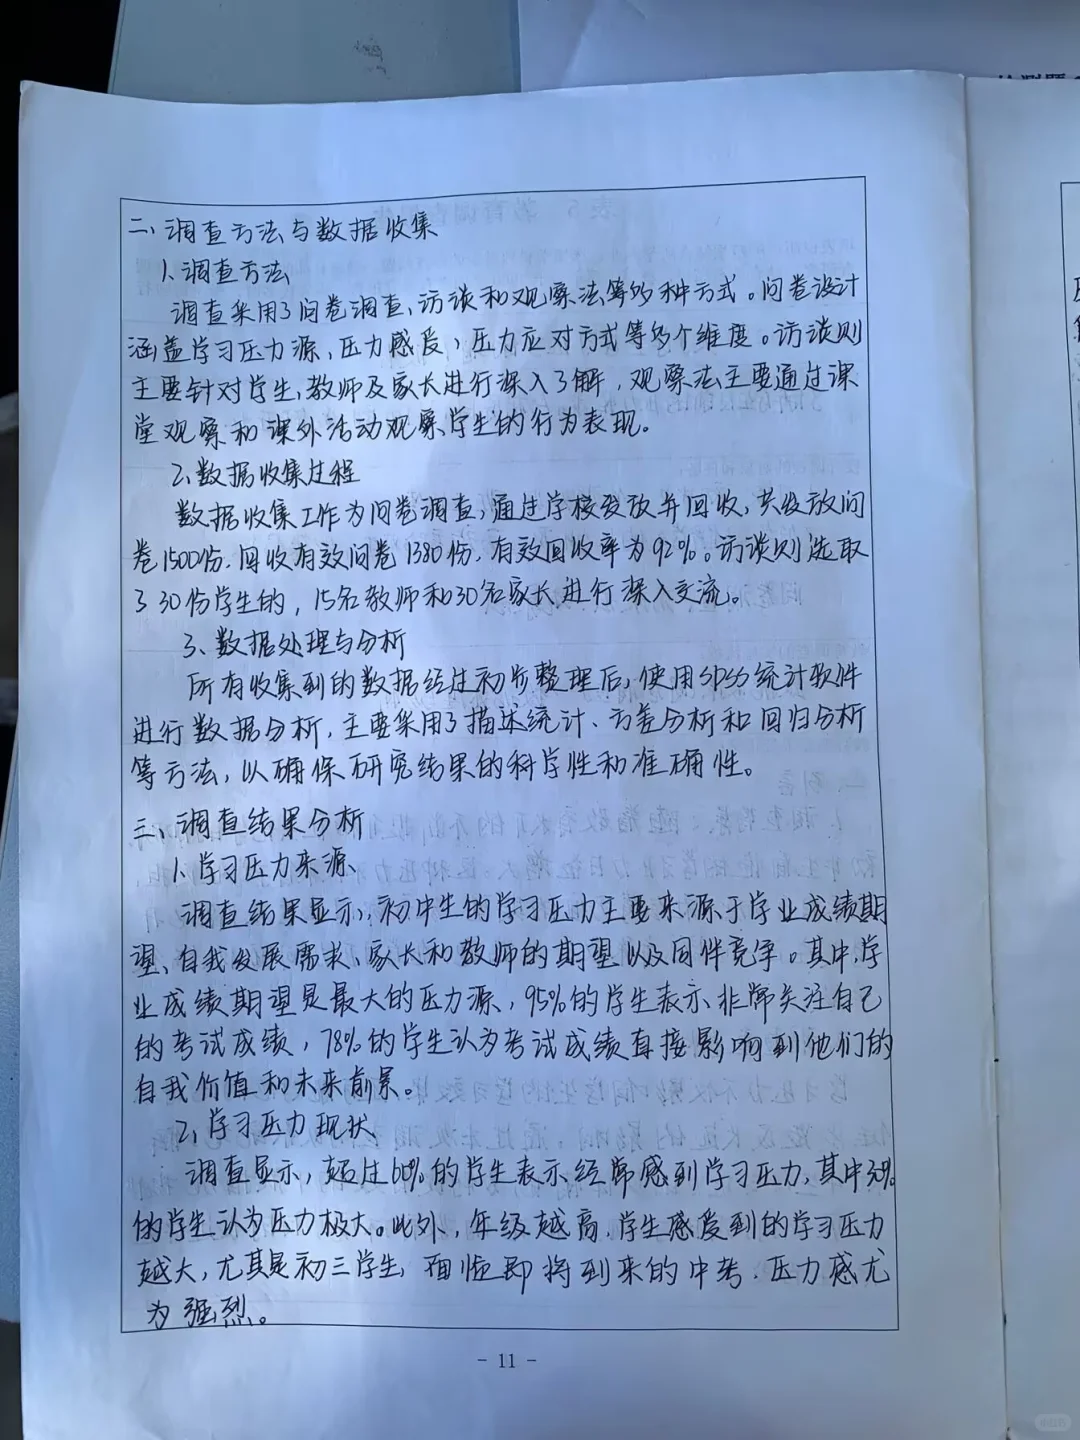 二、调查方法与数据收集
1、调查方法
调查采用了问卷调查、访谈和观察法等多种方式。问卷设计
涵盖学习压力源、压力感受、压力应对方式等多个维度。访谈则
主要针对学生、教师及家长进行深入了解，观察法主要通过课
堂观察和课外活动观察学生的行为表现。
2、数据收集过程
数据收集工作为问卷调查，通过学校发放并回收，共发放问
卷1500份，回收有效问卷1380份，有效回收率为92%。访谈则选取
了30份学生的，15名教师和30名家长进行深入交流。
3、数据处理与分析
所有收集到的数据经过初步整理后，使用SPSS统计软件
进行数据分析，主要采用了描述统计、方差分析和回归分析
等方法，以确保研究结果的科学性和准确性。
三、调查结果分析
1、学习压力来源
调查结果显示，初中生的学习压力主要来源于学业成绩期
望、自我发展需求、家长和教师的期望以及同伴竞争。其中，学
业成绩期望是最大的压力源，95%的学生表示非常关注自己
的考试成绩，78%的学生认为考试成绩直接影响到他们的
自我价值和未来前景。
2、学习压力现状
调查显示，超过60%的学生表示经常感到学习压力，其中
的学生认为压力极大。此外，年级越高，学生感受到的学习压力
越大，尤其是初三学生，面临即将到来的中考，压力感尤
为强烈。
- 11 -